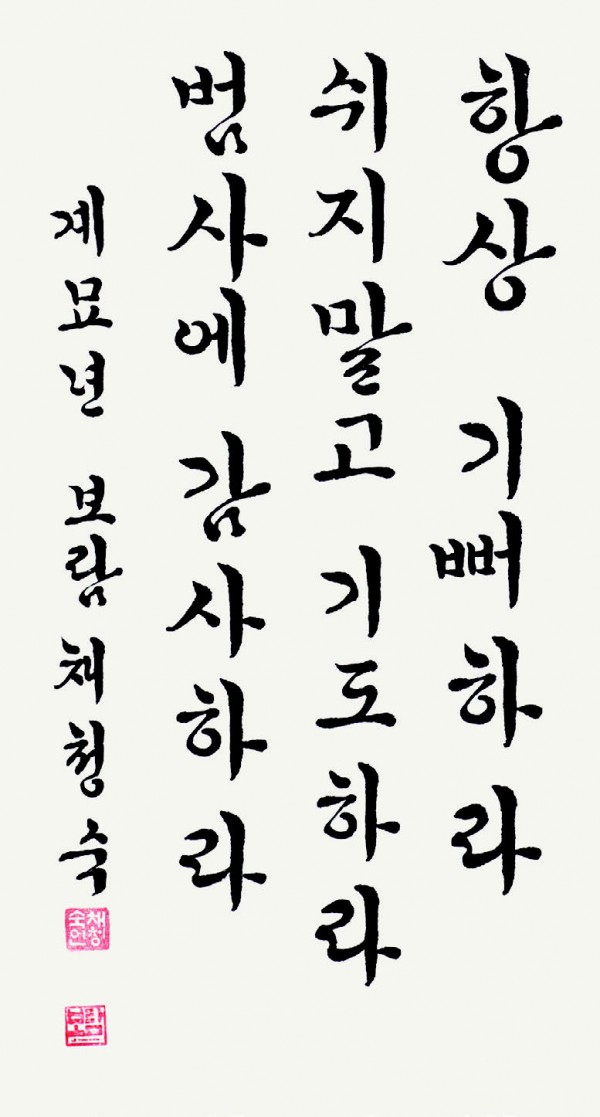 항상 기뻐하라
쉬지말고 기도하라
범사에 감사하라
계묘년 보람 채청숙
채청숙인
보람